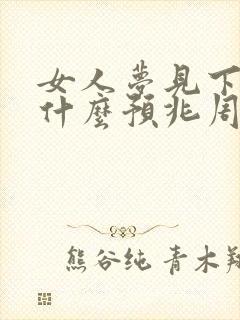 女人夢見下
什麼預兆周
熊谷纯 青木翔